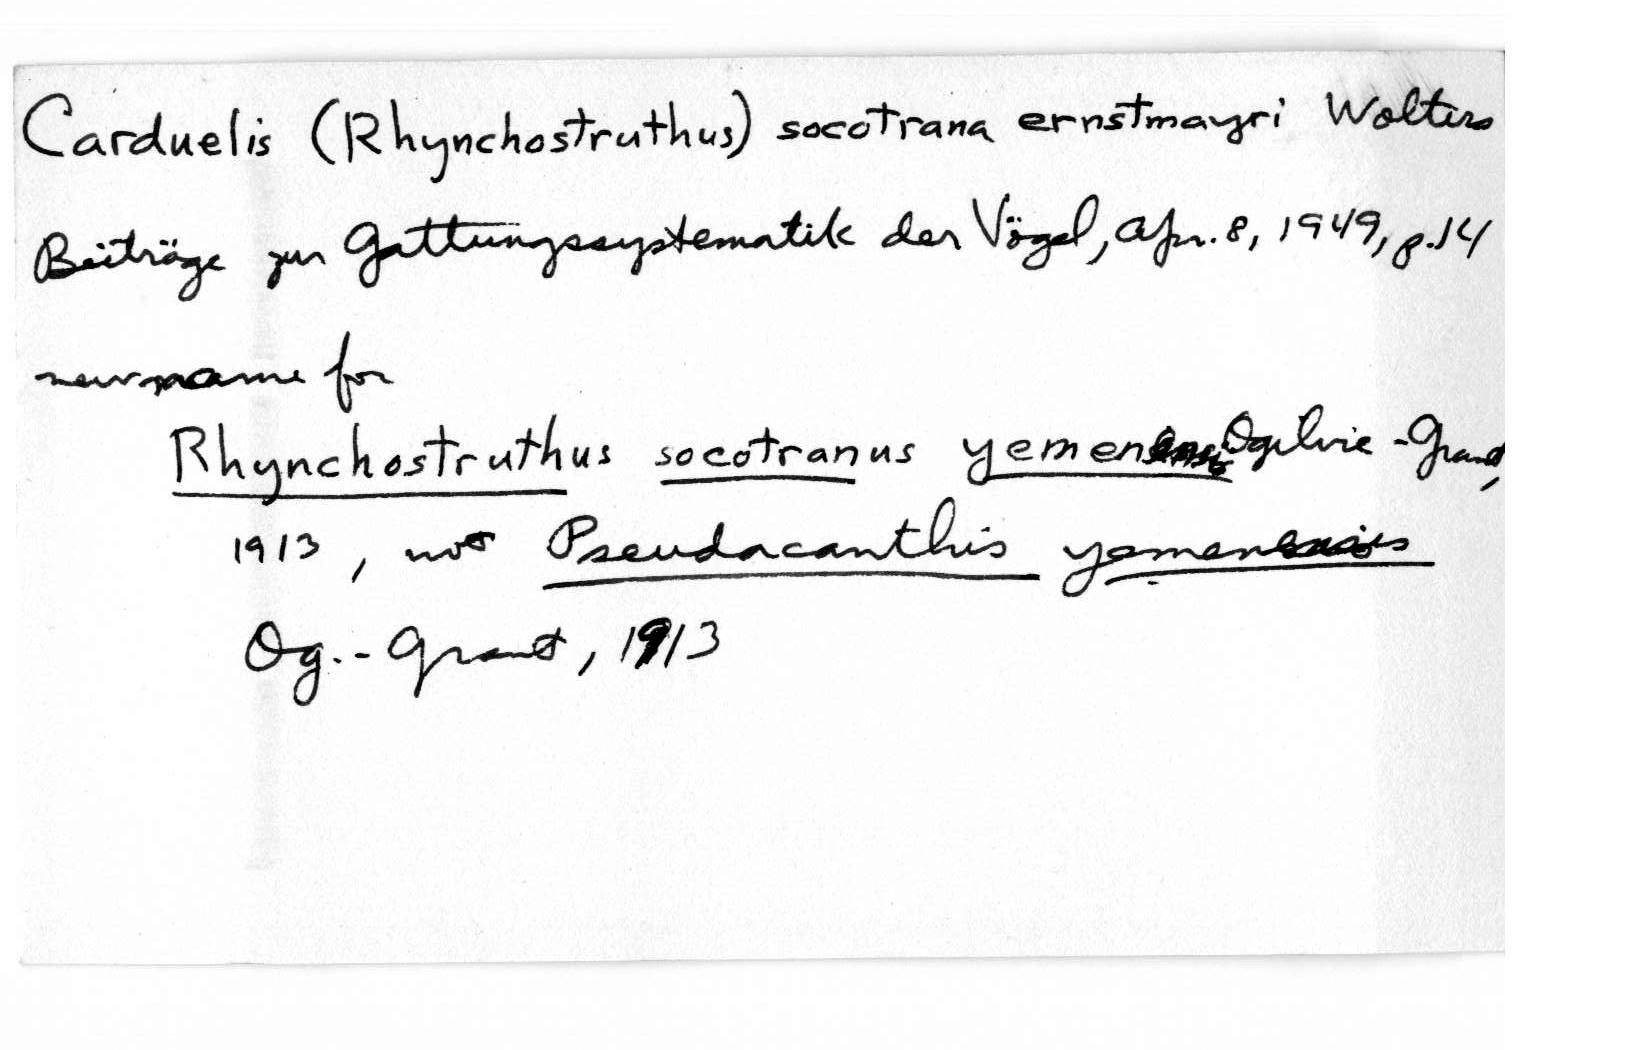 Carduelis (Rhynchostruthus) socotrana ernstmayri Wolters
Beiträge zur Gattungssystematik der Vögel, Apr. 8, 1949, p. 14
new name for
Rhynchostruthus socotranus yemenensis Ogilvie-Grant,
1913, not Pseudacanthis yemensis
Og.-Grant, 1913